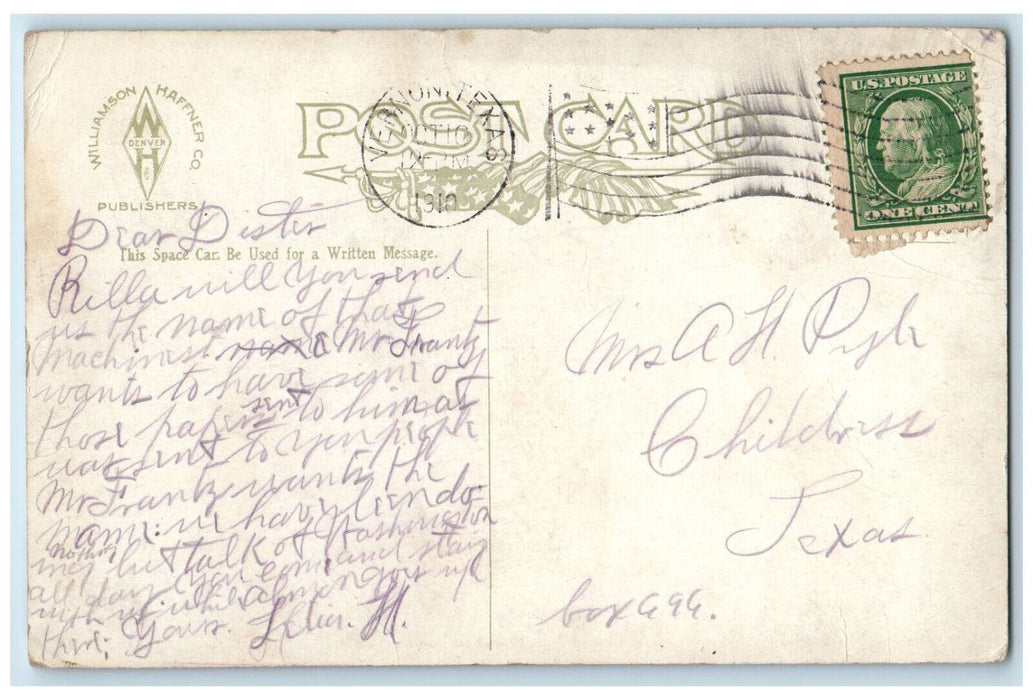 WILLIAMSON HAFFNER CO.
W
DENVER
H
PUBLISHERS
POST CARD
VERNON, TEXAS
OCT 10
12 PM
1910
U.S. POSTAGE
ONE CENT
Dear Sister
This Space Can Be Used for a Written Message.
Rilla will you send
us the name of that
Machinest name Mr Frantz
wants to have some of
those papers sent to him as
was sent to you people
Mr Frantz wants the
name: we have been do
ing nothing but talk of Washington
all day. you come and stay
with us while
there; Yours. H.
Mrs A H Pyle
Childress
Texas.
box 494.